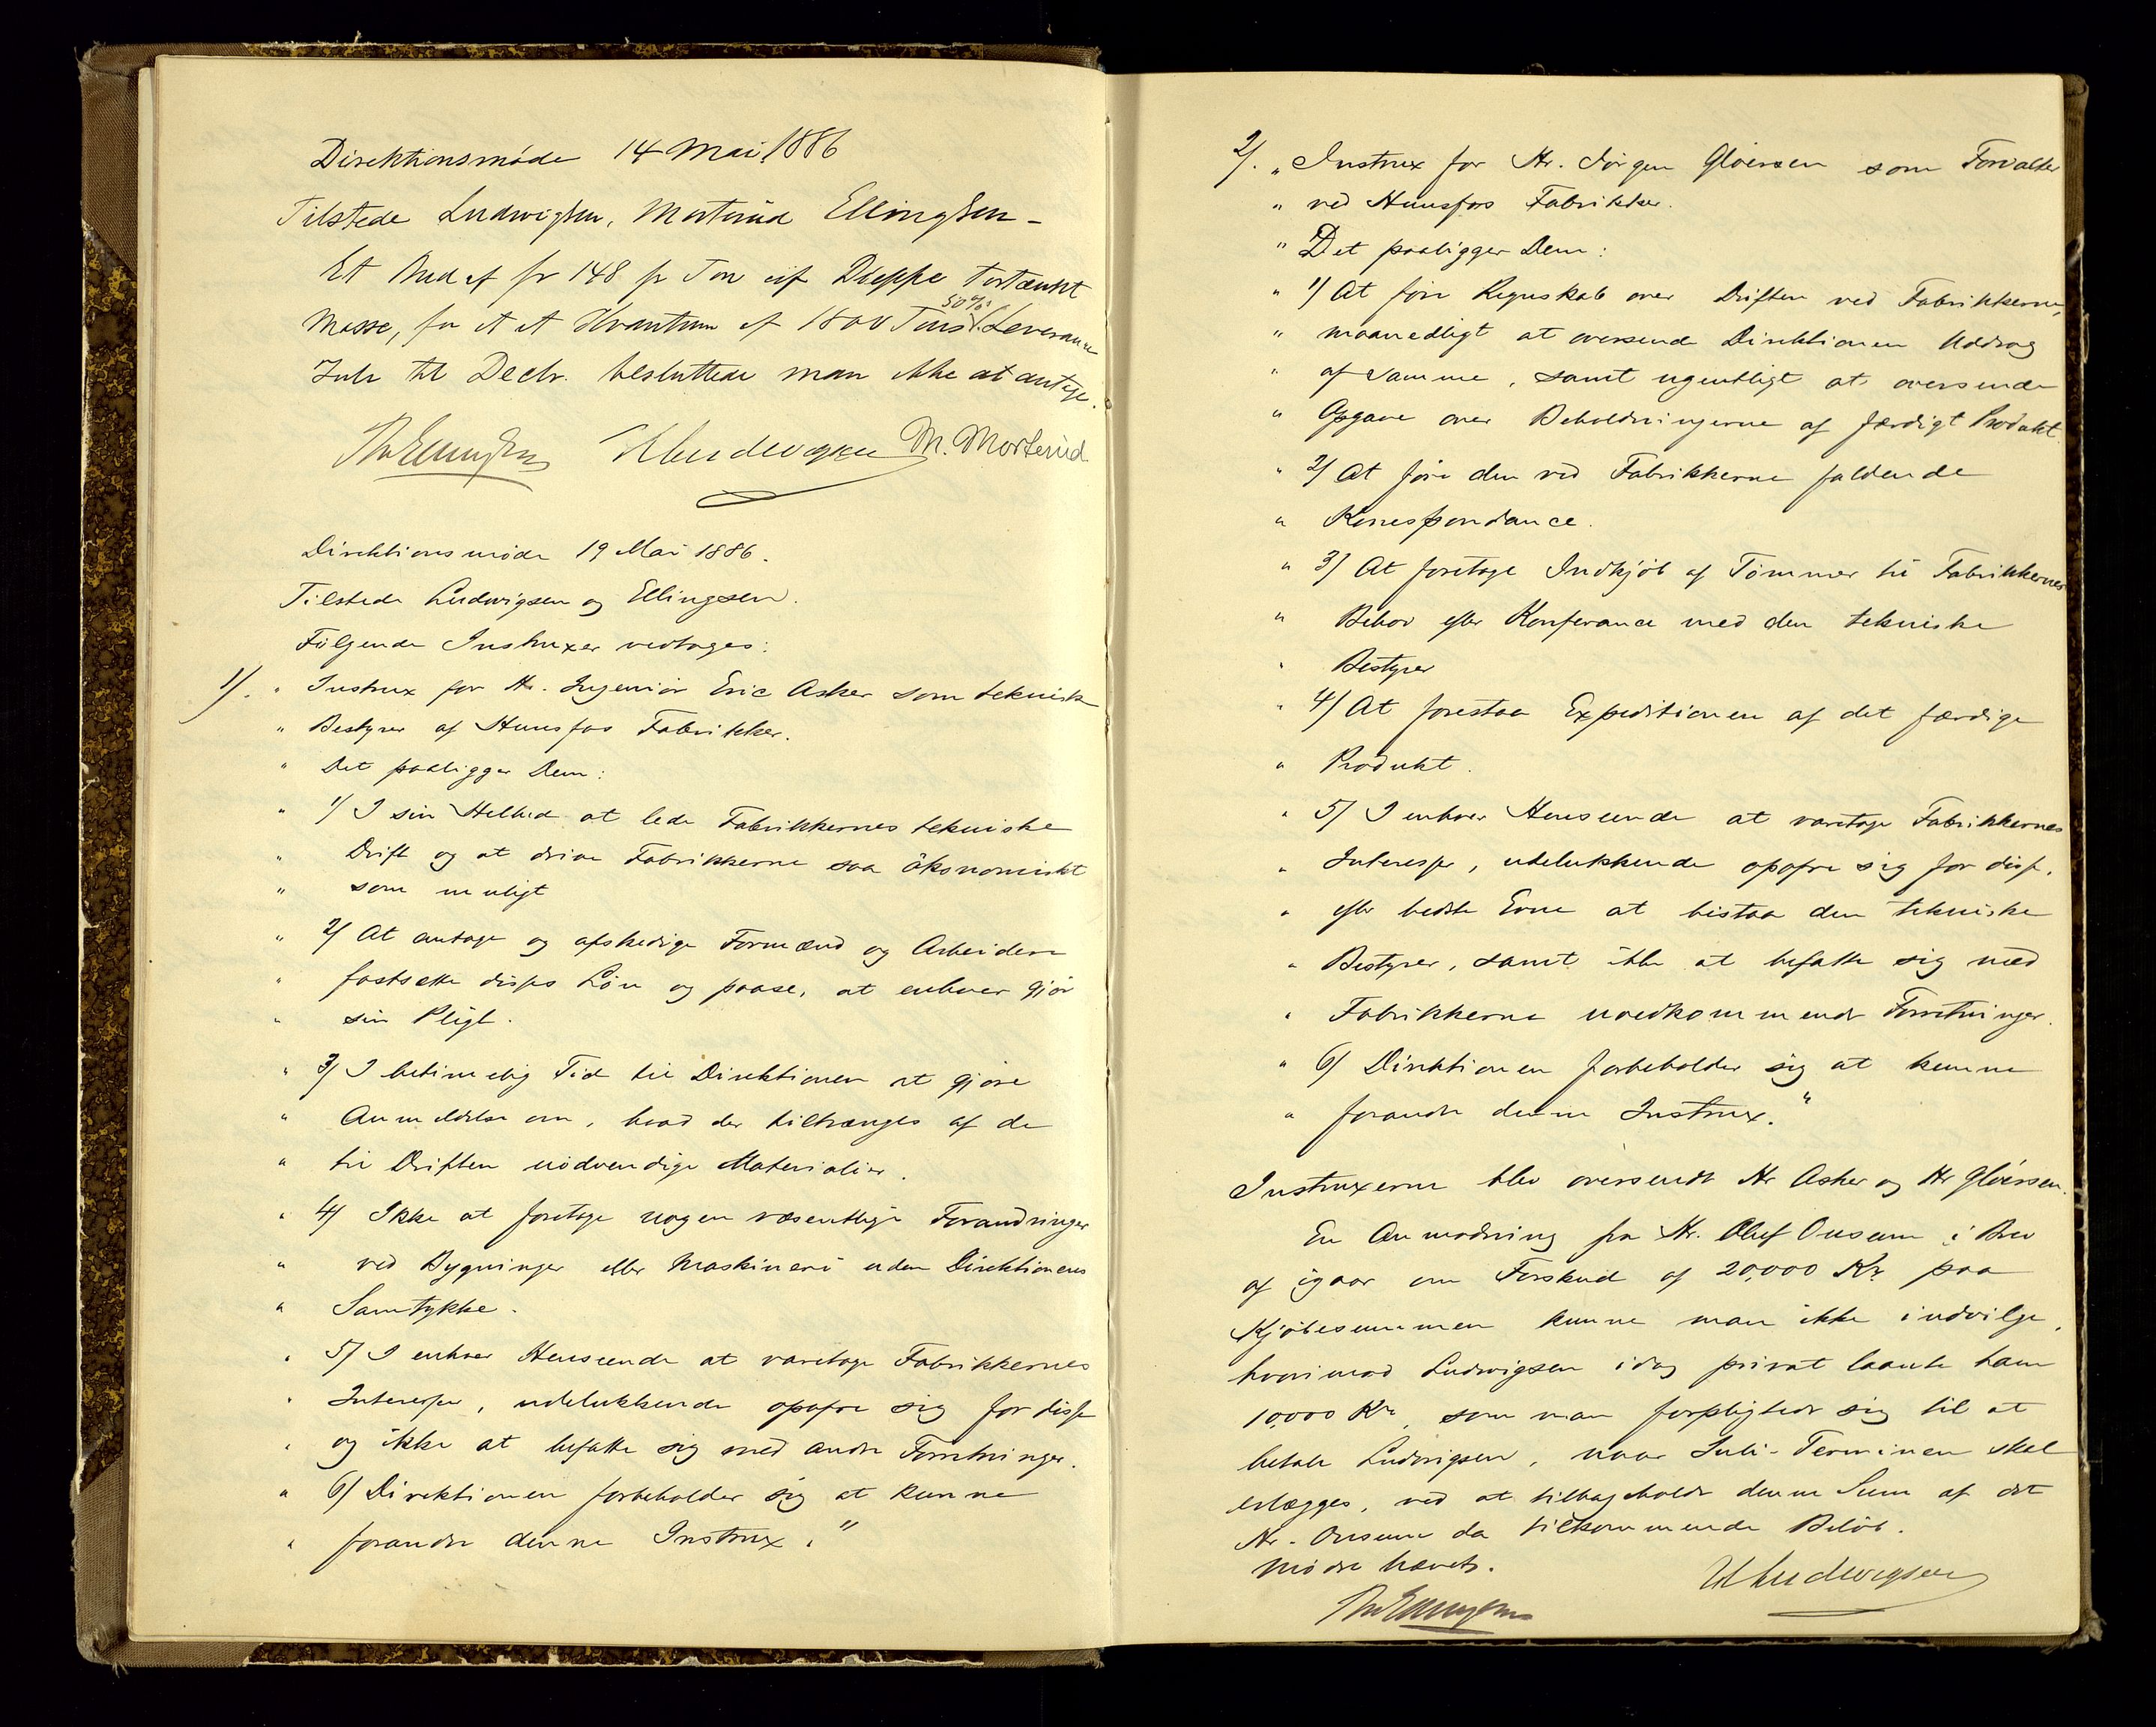 Direktionsmøde 14 Mai 1886
Tilstede Ludwigsen, Morterud Ellingsen -
Et Bud af fr 148 pr Ton cif Dieppe Tørtænkt
50%
Masse, for et et Kvantum af 1800 Tons Leverance
Juli til Decbr. besluttede man ikke at antage.
Th Ellingsen HLudwigsen M. Morterud
Direktionsmøde 19 Mai 1886.
Tilstede Ludwigsen og Ellingsen.
Følgende Instruxer vedtoges:
1/. " Instrux for Hr. Ingeniør Eric Asker som teknisk
" Bestyrer af Hunsfos Fabrikker.
" Det paaligger Dem:
" 1/ I sin Helhed at lede Fabrikkernes tekniske
" Drift og at drive Fabrikkerne saa økonomiskt
" som muligt
" 2/ At antage og afskedige Formænd og Arbeidere
" fastsætte disses Løn og paase, at enhver gjør
" sin Pligt.
" 3/ I betimelig Tid til Direktionen at gjøre
" Anmeldelse om, hvad der tiltrænges af de
" til Driften nødvendige Materialier.
" 4/ Ikke at foretage nogen væsentlige Forandringer
" ved Bygninger eller Maskineri uden Direktionens
" Samtykke.
" 5/ I enhver Henseende at varetage Fabrikkernes
" Interesser, udelukkende opofre sig for disse
" og ikke at befatte sig med andre Forretninger.
" 6/ Direktionen forbeholder sig at kunne
" forandre denne Instrux."
2/. " Instrux for Hr. Jørgen Gløersen som Forvalter
" ved Hunsfos Fabrikker.
" Det paaligger Dem:
" 1/ At føre Regnskab over Driften ved Fabrikkerne,
" maanedligt at oversende Direktionen Uddrag
" af samme, samt ugentligt at oversende
" Opgave over Beholdningerne af færdigt Produkt.
" 2/ At føre den ved Fabrikkerne faldende
" Korrespondance.
" 3/ At foretage Indkjøb af Tømmer til Fabrikkernes
" Behov efter Konferance med den tekniske
" Bestyrer
" 4/ At forestaa Expeditionen af det færdige
" Produkt.
" 5/ I enhver Henseende at varetage Fabrikkernes
" Interesser, udelukkende opofre sig for disse,
" efter bedste Evne at bistaa den tekniske
" Bestyrer, samt ikke at befatte sig med
" Fabrikkerne uvedkommende Forretninger.
" 6/ Direktionen forbeholder sig at kunne
" forandre denne Instrux."
Instruxerne blev oversendt Hr Asker og Hr Gløersen.
En Anmodning fra Hr. Oluf Onsum i Brev
af igaar om Forskud af 20,000 Kr paa
Kjøbesummen kunne man ikke indvilge,
hvorimod Ludwigsen idag privat laante ham
10,000 Kr, som man forpligtede sig til at
betale Ludwigsen, naar Juli-Terminen skal
erlægges, ved at tilbageholde denne Sum af det
Hr. Onsum da tilkommende Beløb.
Mødet hævet.
HLudwigsen
Th Ellingsen